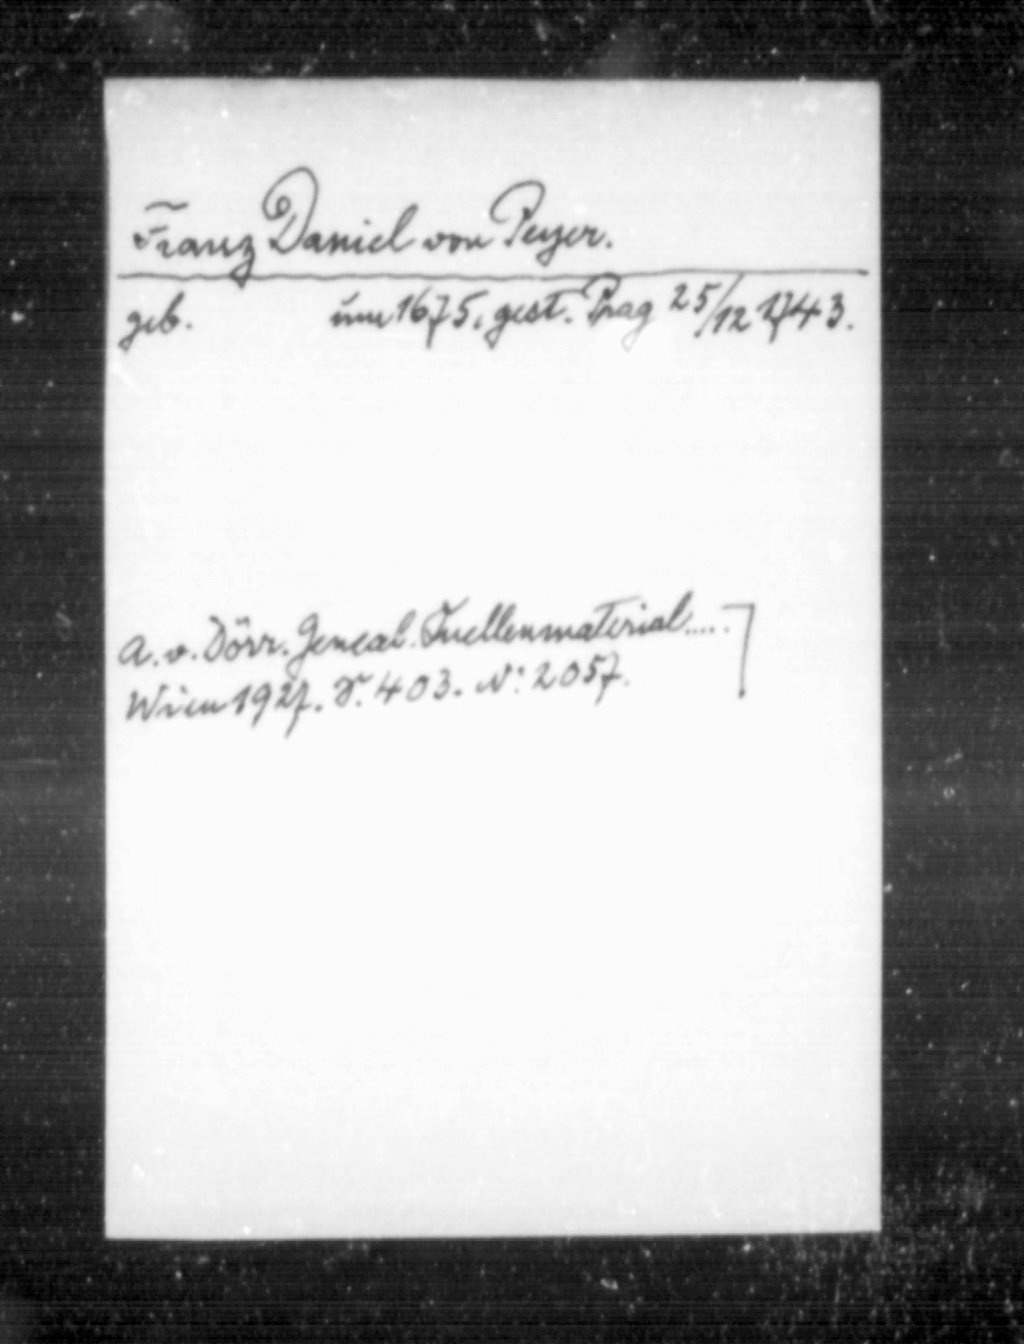 Franz Daniel von Peyer.
geb. um 1675, gest. Prag 25/12 1743.
A. v. Dörr. Geneal. Quellenmaterial.....
Wien 1927. S. 403. No: 2057.